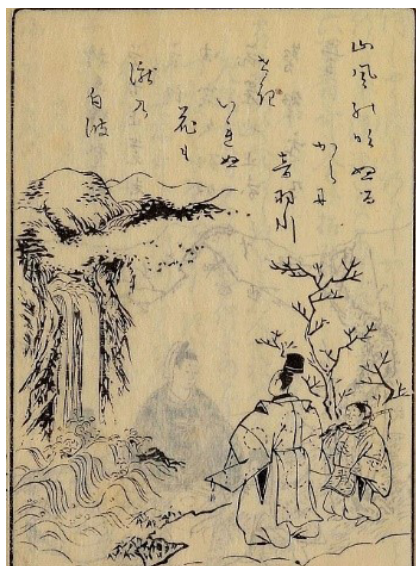 山風の吹ぬる
からに
音羽川
せき
いれぬ
花も
瀧の
白波